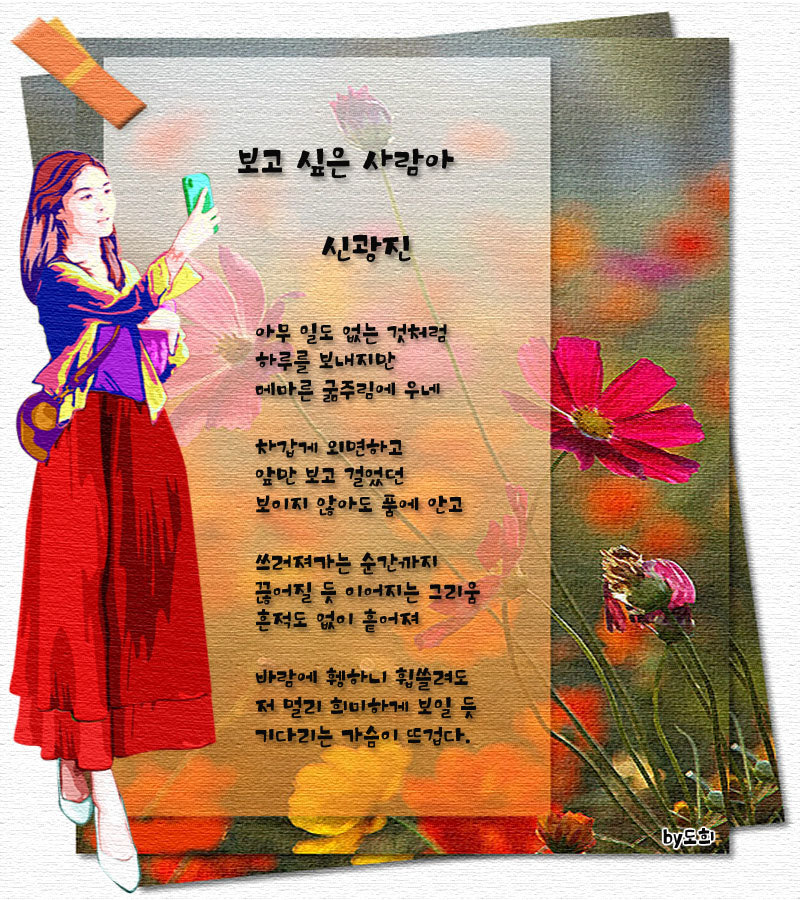 보고 싶은 사람아
신광진
아무 일도 없는 것처럼
하루를 보내지만
메마른 굶주림에 우네
차갑게 외면하고
앞만 보고 걸었던
보이지 않아도 품에 안고
쓰러져가는 순간까지
끊어질 듯 이어지는 그리움
흔적도 없이 흩어져
바람에 휑하니 휩쓸려도
저 멀리 희미하게 보일 듯
기다리는 가슴이 뜨겁다.
by도희